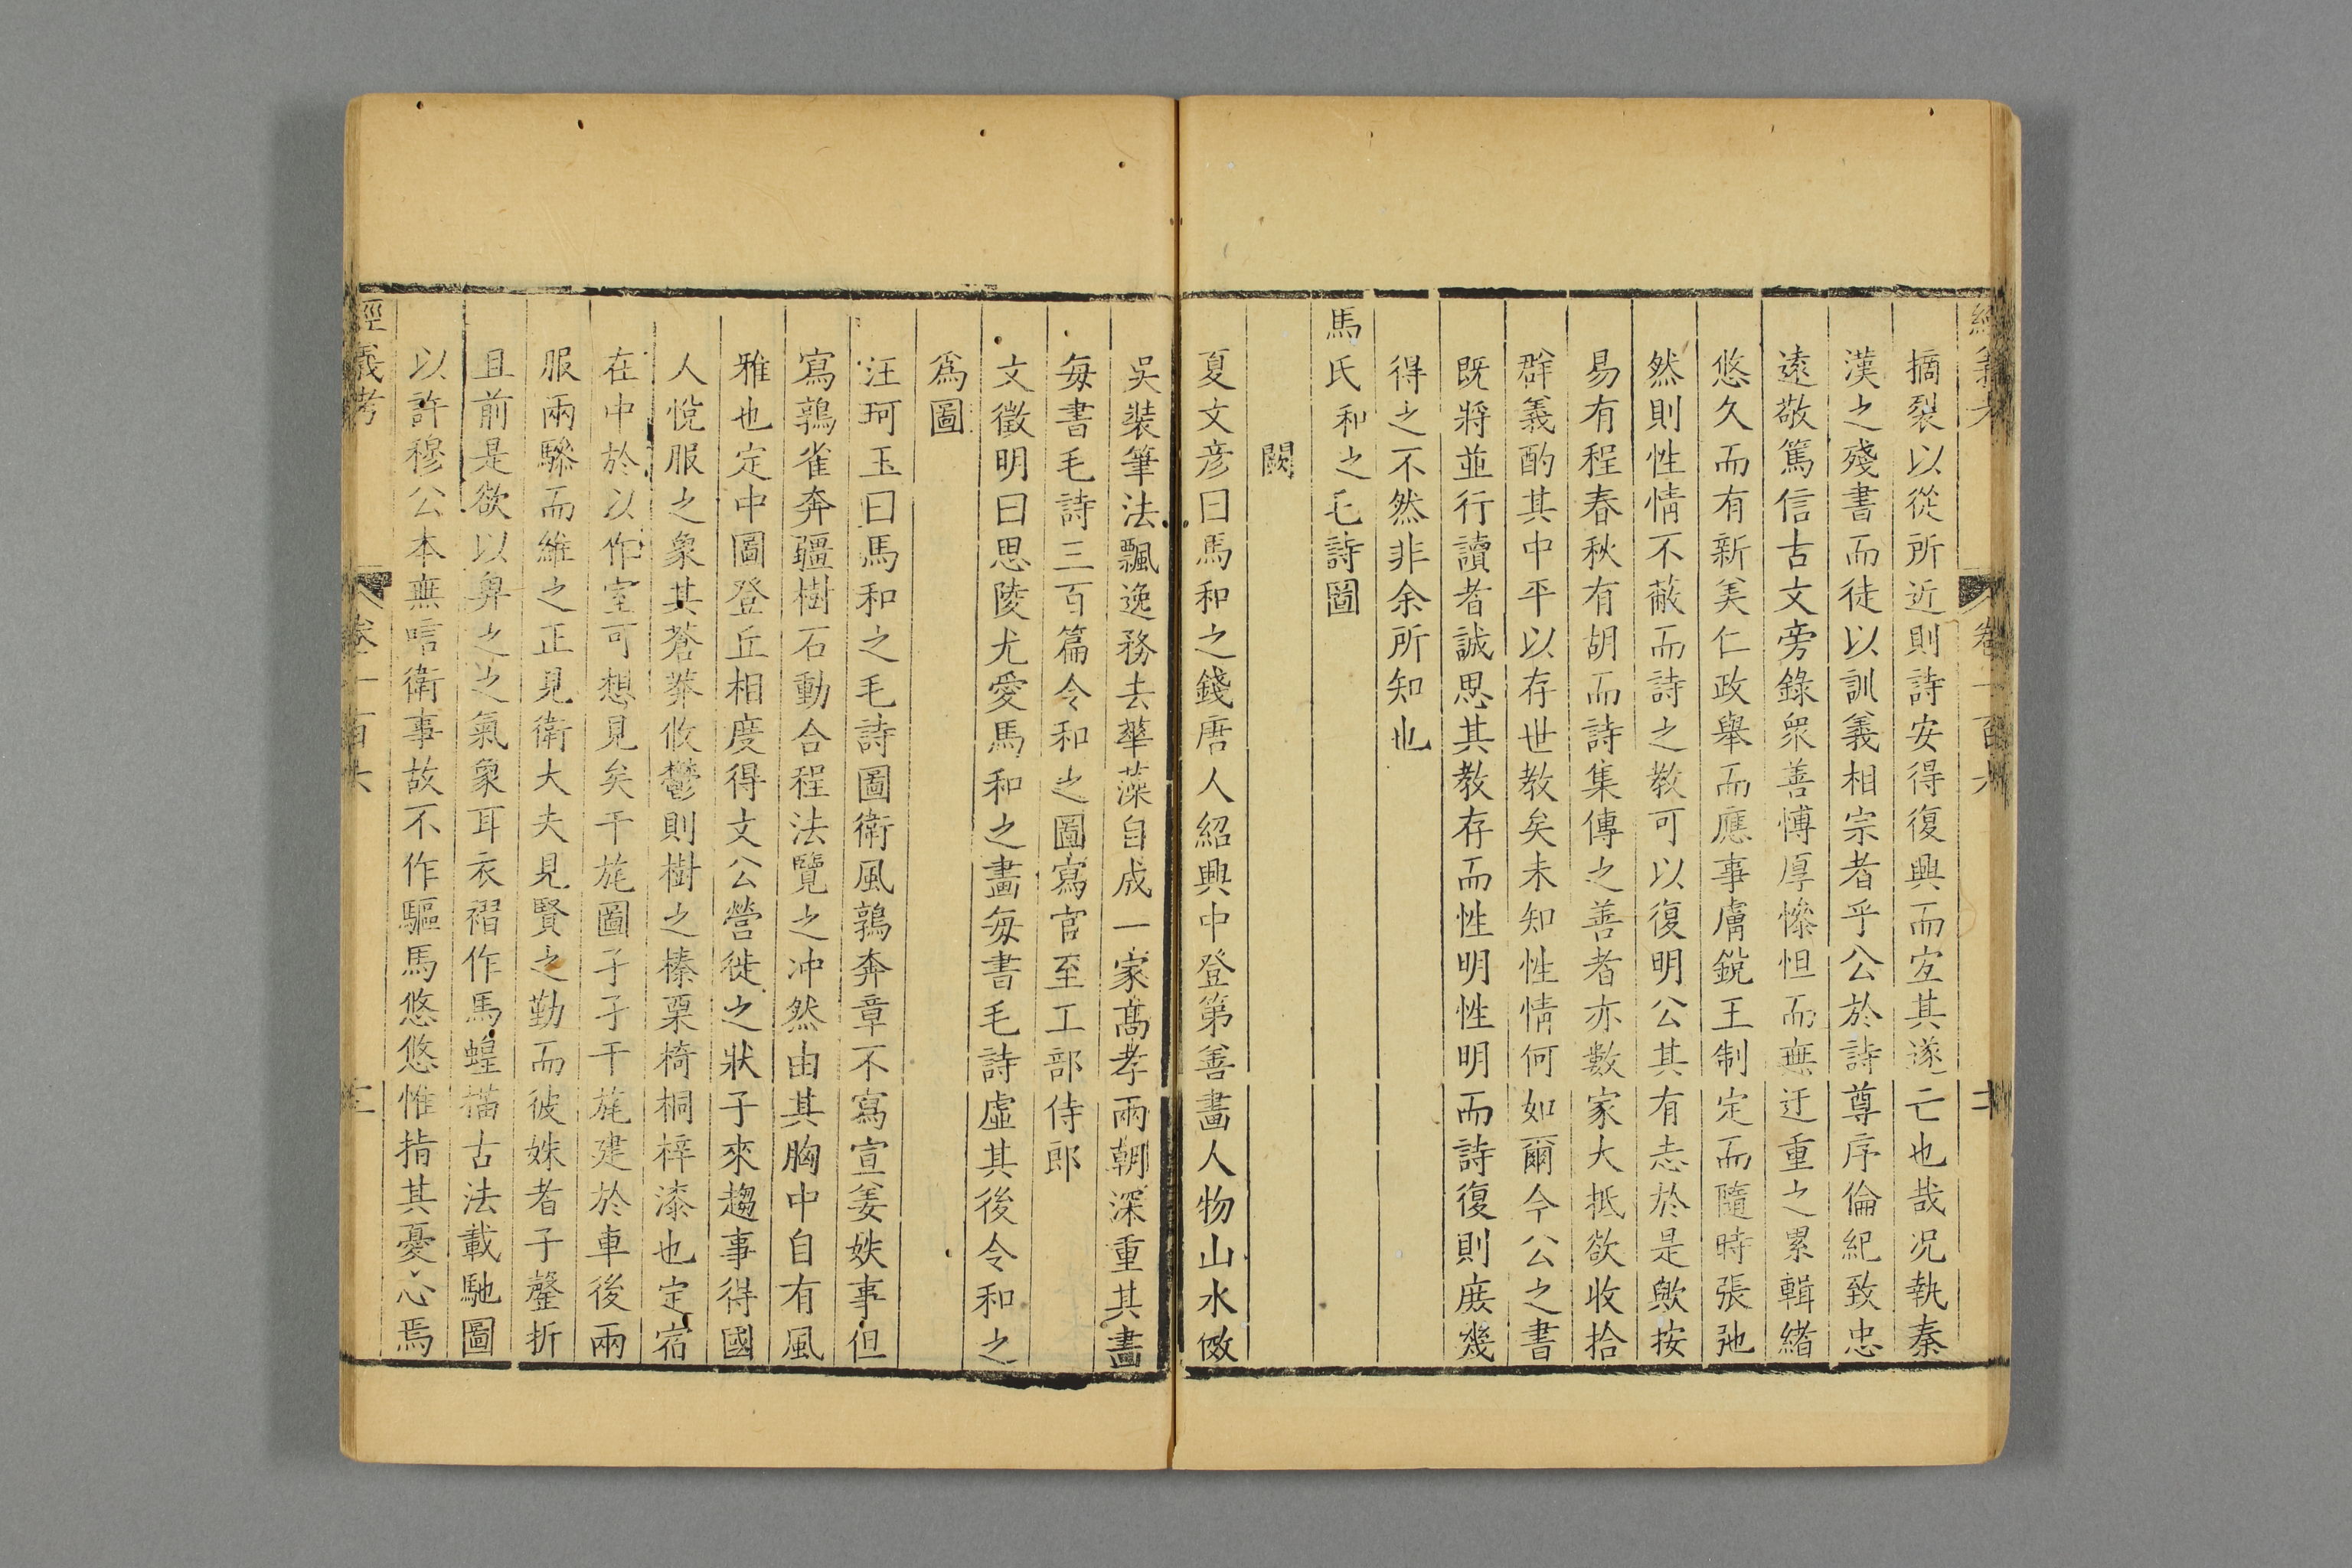 摘裂以從所近則詩安得復興而宜其遂亡也哉况執秦
漢之殘書而徒以訓義相宗者乎公於詩尊序倫紀致忠
遠敬篤信古文旁錄衆善愽厚慘怛而無迂重之累輯緒
悠久而有新美仁政舉而應事膚銳王制定而隨時張弛
然則性情不蔽而詩之教可以復明公其有志於是歟按
易有程春秋有胡而詩集傳之善者亦數家大抵欲收拾
群義酌其中平以存世教矣未知性情何如爾今公之書
既將並行讀者誠思其教存而性明性明而詩復則庶幾
得之不然非余所知也
馬氏和之毛詩圖
闕
夏文彦曰馬和之錢唐人紹興中登第善畫人物山水倣
吳裝筆法飄逸務去華藻自成一家高孝兩朝深重其畫
每書毛詩三百篇令和之圖寫官至工部侍郎
文徵明曰思陵尤愛馬和之畫每書毛詩虛其後令和之
爲圖
汪珂玉曰馬和之毛詩圖衛風鶉奔章不寫宣姜姝事但
寫鶉雀奔疆樹石動合程法覽之冲然由其胸中自有風
雅也定中圖登丘相度得文公營徙之狀子來趨事得國
人悅服之象其蒼莽攸鬱則樹之榛栗椅桐梓漆也定宿
在中於以作室可想見矣干旄圖孑孑干旄建於車後兩
服兩驂而維之正見衛大夫見賢之勤而彼姝者子罄折
且前是欲以畀之之氣象耳衣褶作馬蝗描古法載馳圖
以許穆公本無唁衛事故不作驅馬悠悠惟指其憂心焉
經義考 卷一百六